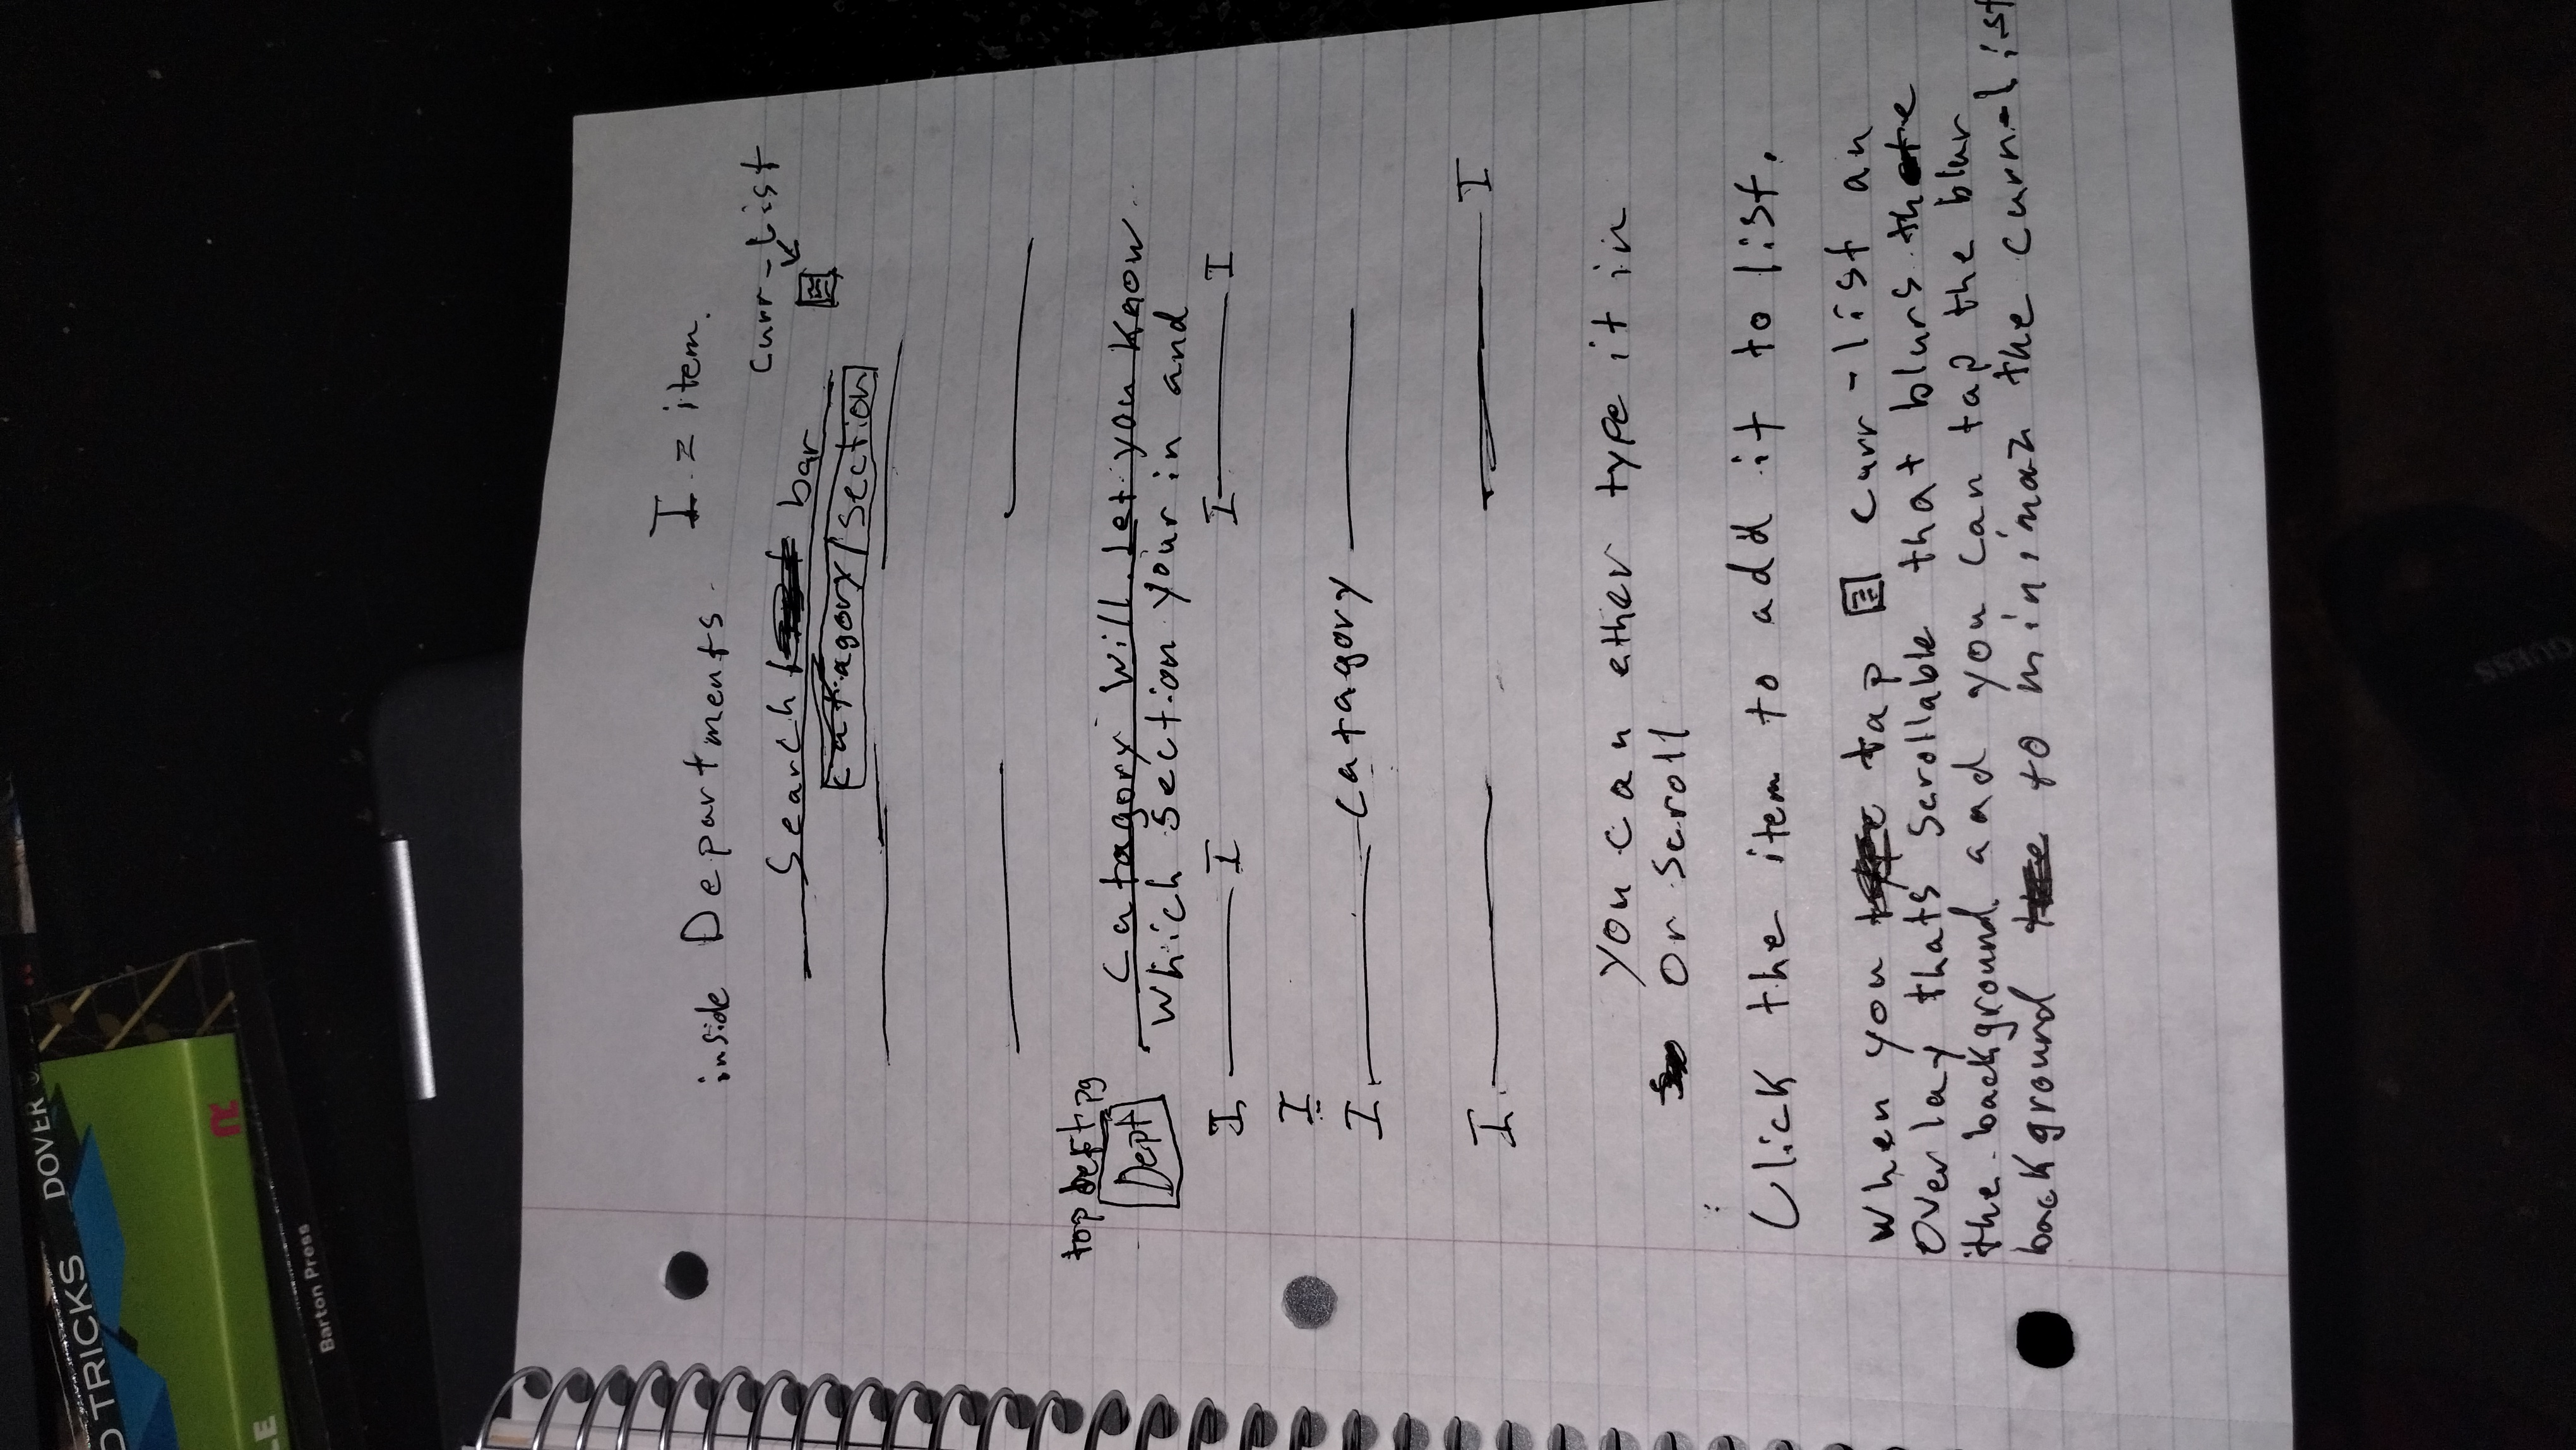 inside Departments. I = item.
curr-list
Search bar
Catagory/Section
top left pg
Dept
Catagory will let you know
which section your in and
I I I I
I
I Catagory
I I
you can ether type it in
or scroll
Click the item to add it to list.
when you tap curr-list an
overlay thats scrollable that blurs the
the background and you can tap the blur
background to minimaz the curn-list
D TRICKS DOVER
Barton Press
LE
GUESS